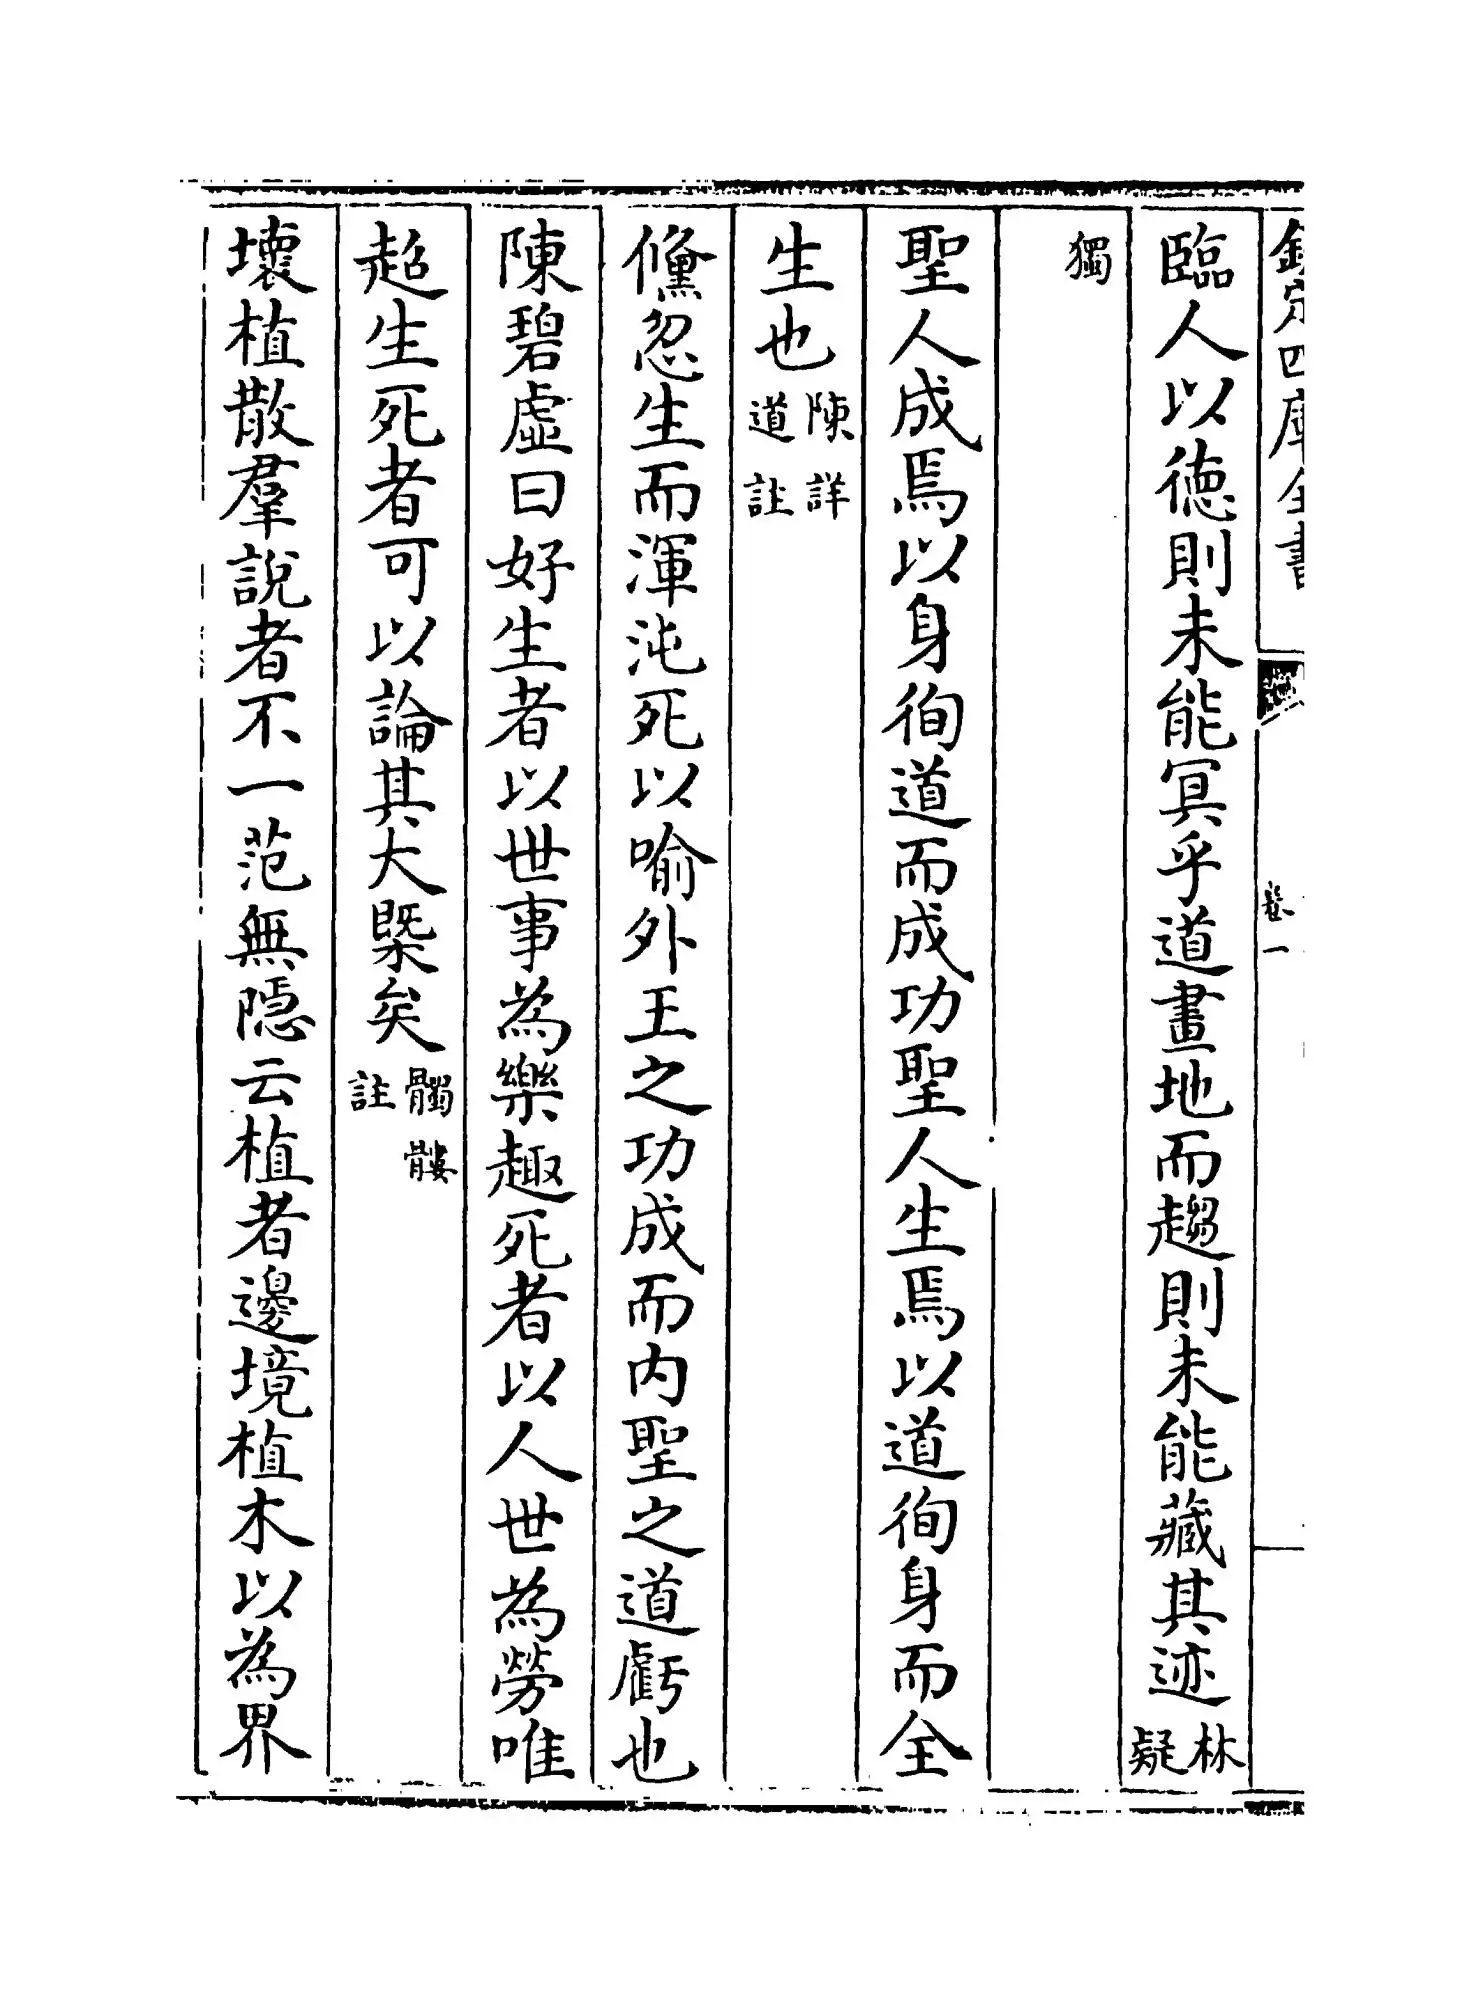 欽定四庫全書
卷一
臨人以徳則未能冥乎道畫地而趨則未能藏其迹林疑
獨
聖人成焉以身徇道而成功聖人生焉以道徇身而全
生也陳詳道註
儵忽生而渾沌死以喻外王之功成而内聖之道虧也
陳碧虛曰好生者以世事為樂趣死者以人世為勞唯
超生死者可以論其大槩矣髑髏註
壞植散羣說者不一范無隱云植者邊境植木以為界